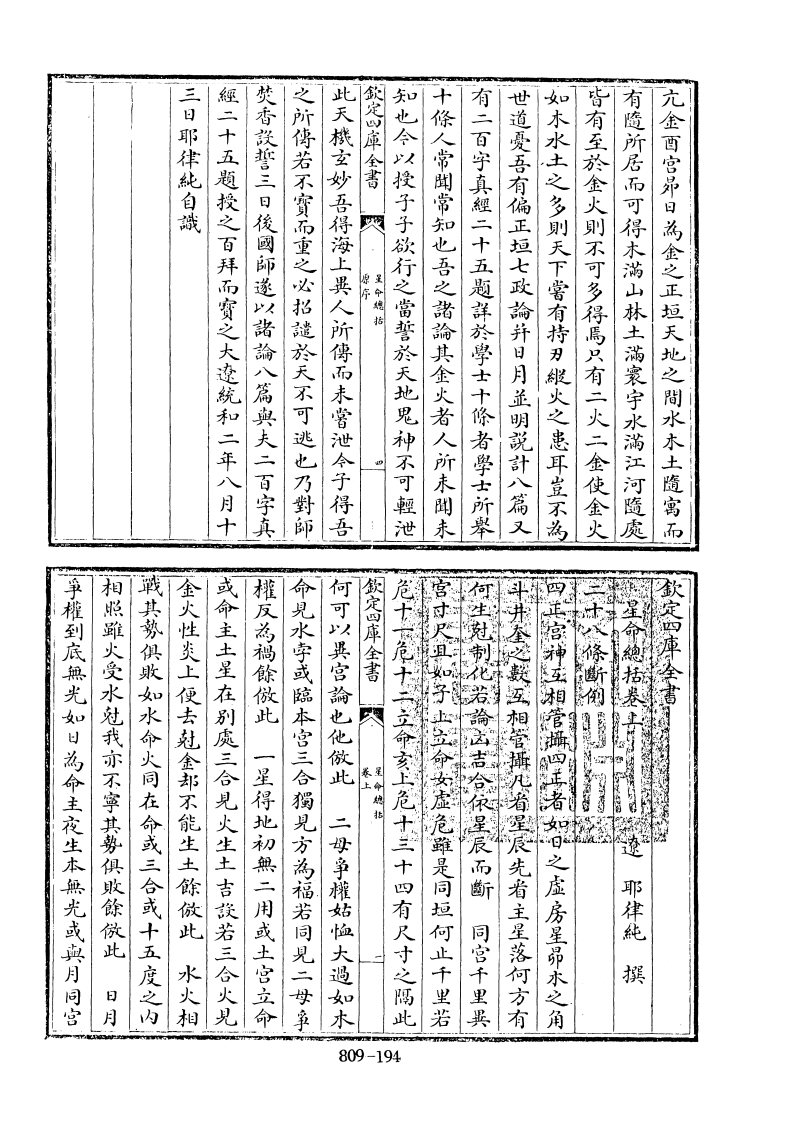 亢金酉宮昴日為金之正垣天地之間水木土隨寓而
有隨所居而可得木滿山林土滿寰宇水滿江河隨處
皆有至於金火則不可多得焉只有二火二金使金火
如木水土之多則天下嘗有持刃縱火之患耳豈不為
世道憂吾有偏正垣七政論并日月並明説計八篇又
有二百字真經二十五題詳於學士十條者學士所舉
十條人常聞常知也吾之諸論其金火者人所未聞未
知也今以授子子欲行之當誓於天地鬼神不可輕泄
欽定四庫全書
星命總括
原序
四
此天機玄妙吾得海上異人所傳而未嘗泄今子得吾
之所傳若不寳而重之必招譴於天不可逃也乃對師
焚香設誓三日後國師遂以諸論八篇與夫二百字真
經二十五題授之百拜而寳之大遼統和二年八月十
三日耶律純自識
欽定四庫全書
星命總括卷上
遼 耶律純 撰
二十八條斷例
四正宮神互相管攝四正者如日之虛房星昴木之角
斗井奎之數互相管攝凡看星辰先看主星落何方有
何生尅制化若論凶吉合依星辰而斷 同宮千里異
宮寸尺且如子上立命女虛危雖是同垣何止千里若
危十一危十二立命亥上危十三十四有尺寸之隔此
欽定四庫全書
星命總括
卷上
一
何可以異宮論也他倣此 二母爭權姑恤大過如木
命見水孛或臨本宮三合獨見方為福若同見二母爭
權反為禍餘倣此 一星得地初無二用或土宮立命
或命主土星在別處三合見火生土吉設若三合火見
金火性炎上便去尅金却不能生土餘倣此 水火相
戰其勢俱敗如水命火同在命或三合或十五度之内
相照雖火受水尅我亦不寧其勢俱敗餘倣此 日月
爭權到底無光如日為命主夜生本無光或與月同宮
809-194